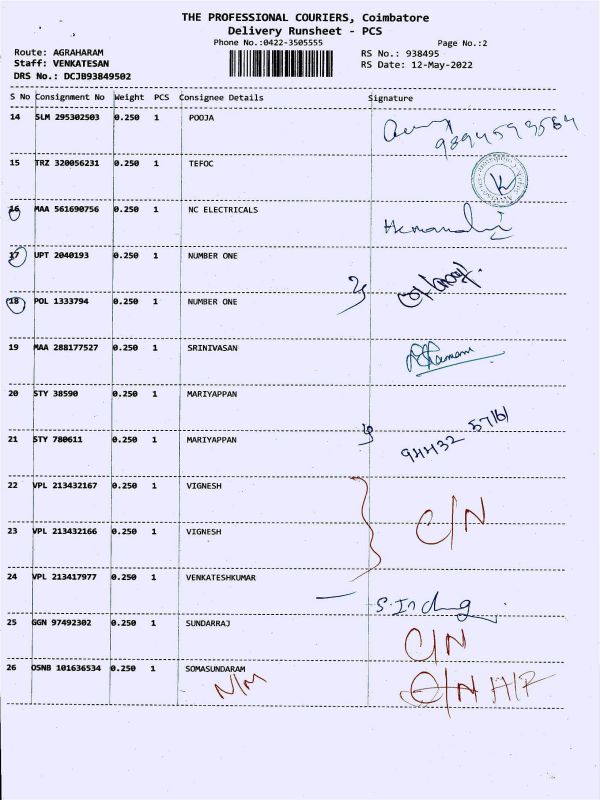 THE PROFESSIONAL COURIERS, Coimbatore
Delivery Runsheet - PCS
Phone No.:0422-3505555
Page No.:2
Route: AGRAHARAM
RS No.: 938495
Staff: VENKATESAN
RS Date: 12-May-2022
DRS No.: DCJB93849502
S No Consignment No Weight PCS Consignee Details Signature
14 SLM 295302503 0.250 1 POOJA
9894593564
15 TRZ 320056231 0.250 1 TEFOC
16 MAA 561690756 0.250 1 NC ELECTRICALS
17 UPT 2040193 0.250 1 NUMBER ONE
18 POL 1333794 0.250 1 NUMBER ONE
19 MAA 288177527 0.250 1 SRINIVASAN
20 STY 38590 0.250 1 MARIYAPPAN
21 STY 780611 0.250 1 MARIYAPPAN
94432
22 VPL 213432167 0.250 1 VIGNESH
C/N
23 VPL 213432166 0.250 1 VIGNESH
24 VPL 213417977 0.250 1 VENKATESHKUMAR
25 GGN 97492302 0.250 1 SUNDARRAJ
C/N
26 OSNB 101636534 0.250 1 SOMASUNDARAM
N/M